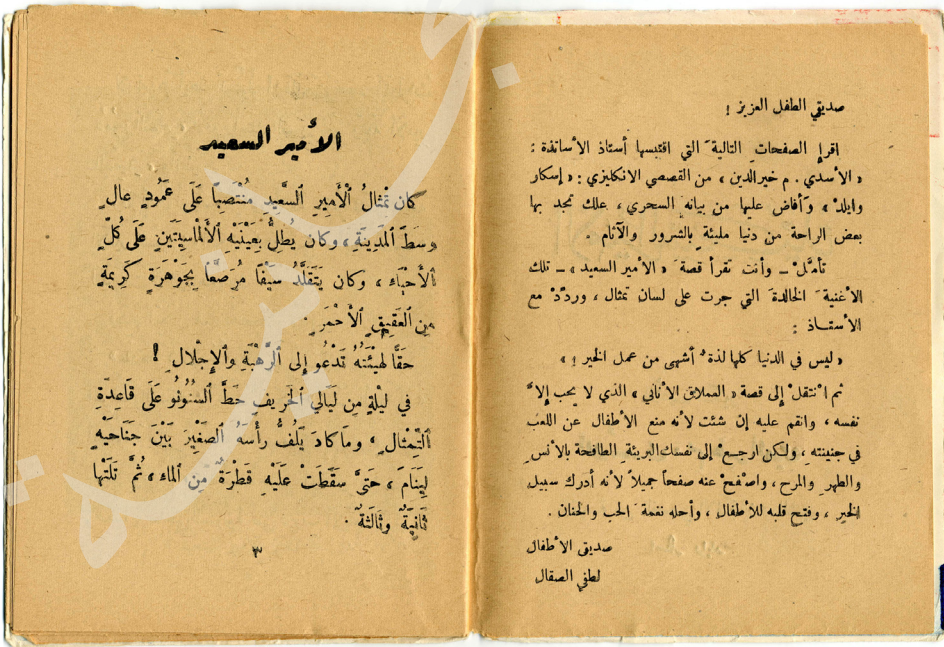 صديقي الطفل العزيز !
اقرإ الصفحاتِ التاليةَ التي اقتبسها أستاذ الأساتذة :
« الأسدي . م خيرالدين » ، من القصصي الانكليزي : « إسكار
وايلد » ، وأفاض عليها من بيانه السحري ، علك تجد بها
بعض الراحة من دنيا مليئة بالشرور والآثام .
تأمَّلْ ــ وأنت تقرأ قصة « الأمير السعيد » ــ تلك
الأغنيةَ الخالدةَ التي جرت على لسان تمثال ، وردِّدْ مع
الأستـاذ :
« ليس في الدنيا كلها لذةٌ أشهى من عمل الخير ! »
ثم انْتقلْ إلى قصة « العملاق الأناني » الذي لا يحب إلاَّ
نفسه ، وانقم عليه إن شئت لأنه منع الأطفال عن اللعب
في جنينته ، ولكن ارجعْ إلى نفسك البريئة الطافحة بالأنسِ
والطهرِ والمرح ، واصْفحْ عنه صفحاً جميلاً لأنه أدرك سبيل
الخير ، وفتح قلبه للأطفال ، وأحله نغمةَ الحب والحنان .
صديق الأطفال
لطفي الصقال
الأمير السعيد
كان تِمْثَالُ ٱلْأَمِيرِ ٱلسَّعِيدِ مُنْتَصِبًا عَلَى عَمُودٍ عالٍ
وسَطَ ٱلْمَدِينَةِ ، وكان يُطِلُّ بِعَيْنَيْهِ ٱلْأَلْمَاسِيَّتَيْنِ عَلَى كُلِّ
ٱلْأَحْيَاءِ ، وكان يَتَقَلَّدُ سَيْفًا مُرَصَّعًا بِجَوْهَرَةٍ كَرِيمَةٍ
مِن ٱلْعَقِيقِ ٱلْأَحْمَرِ .
حَقًّا لهيْئَتُهُ تَدْعُو إلى ٱلرَّهْبَةِ وٱلْإِجْلالِ !
في ليْلَةٍ مِن لَيَالي ٱلْخَرِيفِ حَطَّ ٱلسُّنُونُو عَلَى قَاعِدَةِ
ٱلتِّمْثَالِ ، وماكادَ يَلُفُّ رأْسَهُ ٱلصَّغِيرَ بَيْنَ جَنَاحَيْهِ
لِيَنَامَ ، حَتَّى سَقَطَتْ عَلَيْهِ قَطْرَةٌ مِّنَ ٱلماءِ ، ثُمَّ تَلَتْها
ثَانِيَةٌ وثَالِثَةٌ .
٣